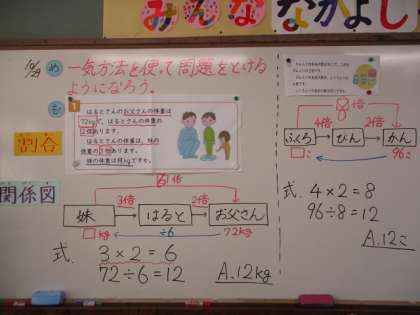 みんな なかよし
10/29
め 一気方法を使って問題をとける
ようになろう。
も
1
はるとさんのお父さんの体重は
72kgで、はるとさんの体重の
2倍あります。
はるとさんの体重は、妹の
体重の3倍あります。
妹の体重は何kgですか。
割合
関係図
6倍
3倍 2倍
妹 はると お父さん
□kg ÷6 72kg
式. 3×2=6
72÷6=12 A.12kg
8倍
4倍 2倍
ふくろ びん かん
□こ 96こ
式. 4×2=8
96÷8=12
A.12こ